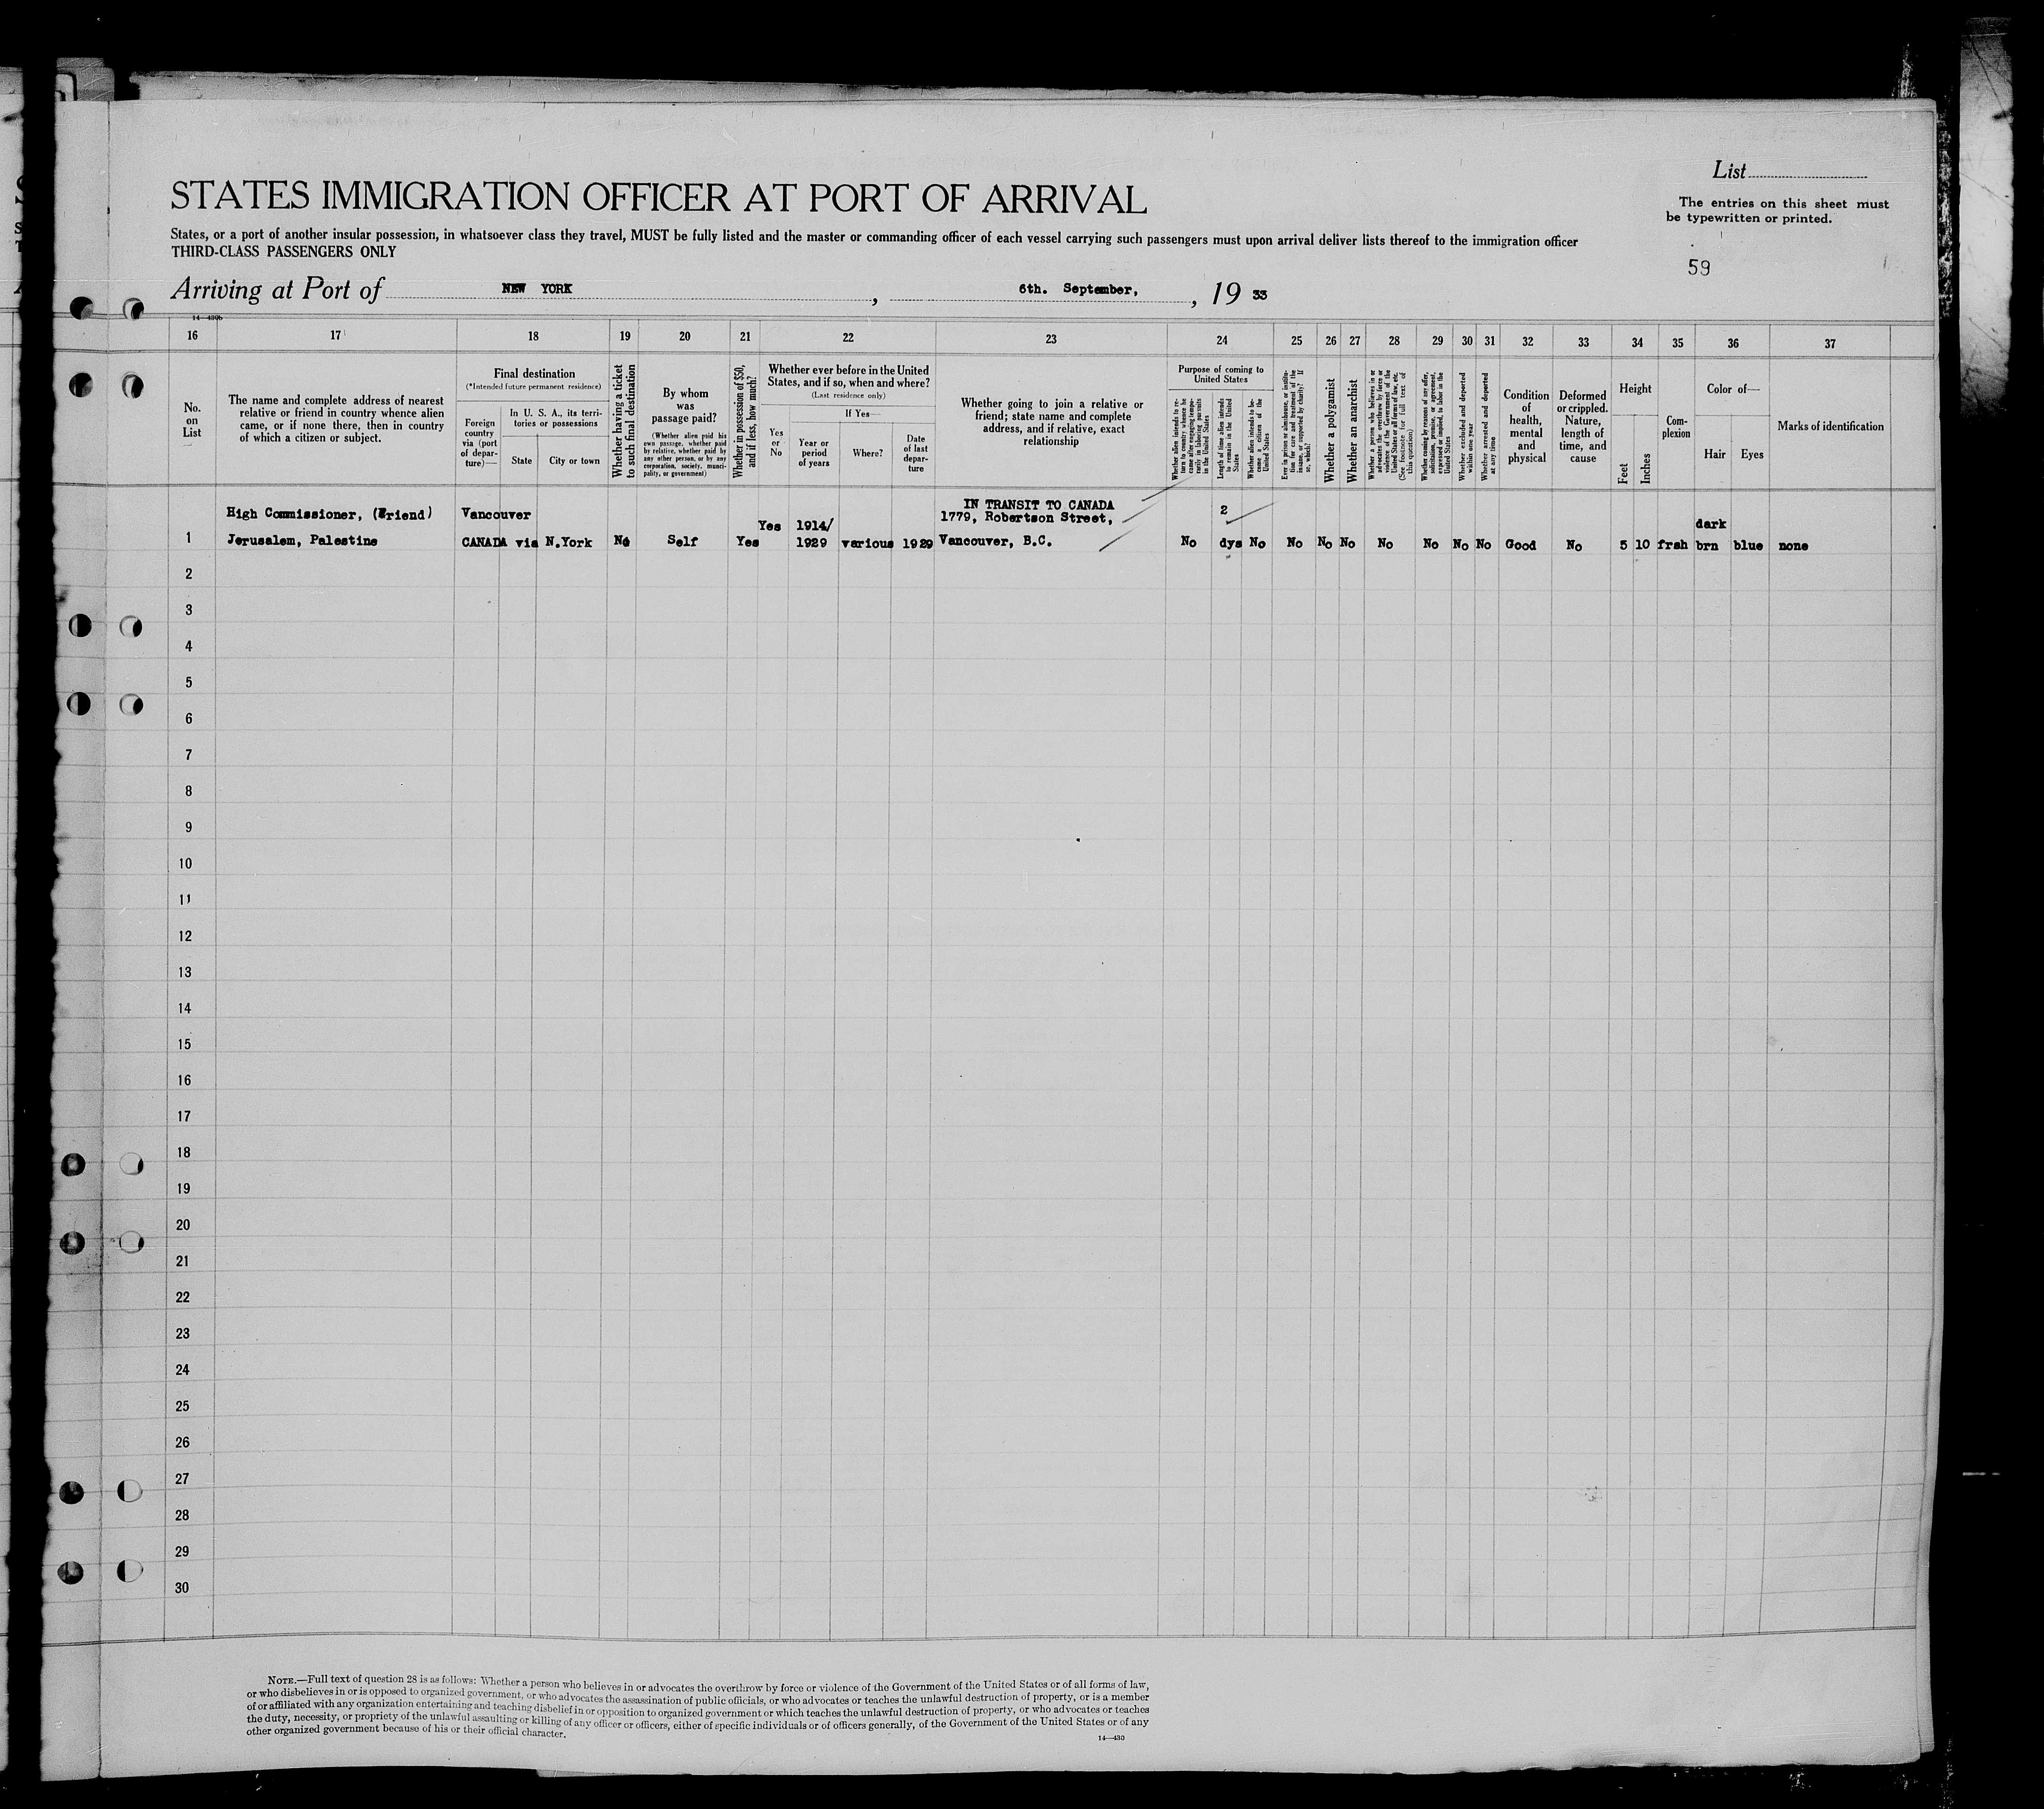 List
STATES IMMIGRATION OFFICER AT PORT OF ARRIVAL
The entries on this sheet must
be typewritten or printed.
States, or a port of another insular possession, in whatsoever class they travel, MUST be fully listed and the master or commanding officer of each vessel carrying such passengers must upon arrival deliver lists thereof to the immigration officer
THIRD-CLASS PASSENGERS ONLY
59
Arriving at Port of NEW YORK, 6th. September, 19 33
14—430b
16 17 18 19 20 21 22 23 24 25 26 27 28 29 30 31 32 33 34 35 36 37
No.
on
List
The name and complete address of nearest
relative or friend in country whence alien
came, or if none there, then in country
of which a citizen or subject.
Final destination
(*Intended future permanent residence)
Foreign
country
via (port
of depar-
ture)—
In U. S. A., its terri-
tories or possessions
State
City or town
Whether having a ticket
to such final destination
By whom
was
passage paid?
(Whether alien paid his
own passage, whether paid
by relative, whether paid by
any other person, or by any
corporation, society, munici-
pality, or government)
Whether in possession of $50,
and if less, how much?
Whether ever before in the United
States, and if so, when and where?
(Last residence only)
Yes
or
No
If Yes—
Year or
period
of years
Where?
Date
of last
depar-
ture
Whether going to join a relative or
friend; state name and complete
address, and if relative, exact
relationship
Purpose of coming to
United States
Whether alien intends to re-
turn to country whence he
came after engaging tempo-
rarily in laboring pursuits
in the United States
Length of time alien intends
to remain in the United
States
Whether alien intends to be-
come a citizen of the
United States
Ever in prison or almshouse, or institu-
tion for care and treatment of the
insane, or supported by charity? If
so, which?
Whether a polygamist
Whether an anarchist
Whether a person who believes in or
advocates the overthrow by force or
violence of the Government of the
United States or all forms of law, etc.
(See footnote for full text of
this question)
Whether coming by reasons of any offer,
solicitation, promise, or agreement,
expressed or implied, to labor in the
United States
Whether excluded and deported
within one year
Whether arrested and deported
at any time
Condition
of
health,
mental
and
physical
Deformed
or crippled.
Nature,
length of
time, and
cause
Height
Feet
Inches
Com-
plexion
Color of—
Hair
Eyes
Marks of identification
High Commissioner, (Friend) Vancouver Yes 1914/ IN TRANSIT TO CANADA
1779, Robertson Street, 2 dark
1 Jerusalem, Palestine CANADA via N.York No Self Yes 1929 various 1929 Vancouver, B.C. No dys No No No No No No No No Good No 5 10 frsh brn blue none
2
3
4
5
6
7
8
9
10
11
12
13
14
15
16
17
18
19
20
21
22
23
24
25
26
27
28
29
30
NOTE.—Full text of question 28 is as follows: Whether a person who believes in or advocates the overthrow by force or violence of the Government of the United States or of all forms of law,
or who disbelieves in or is opposed to organized government, or who advocates the assassination of public officials, or who advocates or teaches the unlawful destruction of property, or is a member
of or affiliated with any organization entertaining and teaching disbelief in or opposition to organized government or which teaches the unlawful destruction of property, or who advocates or teaches
the duty, necessity, or propriety of the unlawful assaulting or killing of any officer or officers, either of specific individuals or of officers generally, of the Government of the United States or of any
other organized government because of his or their official character.
14—430